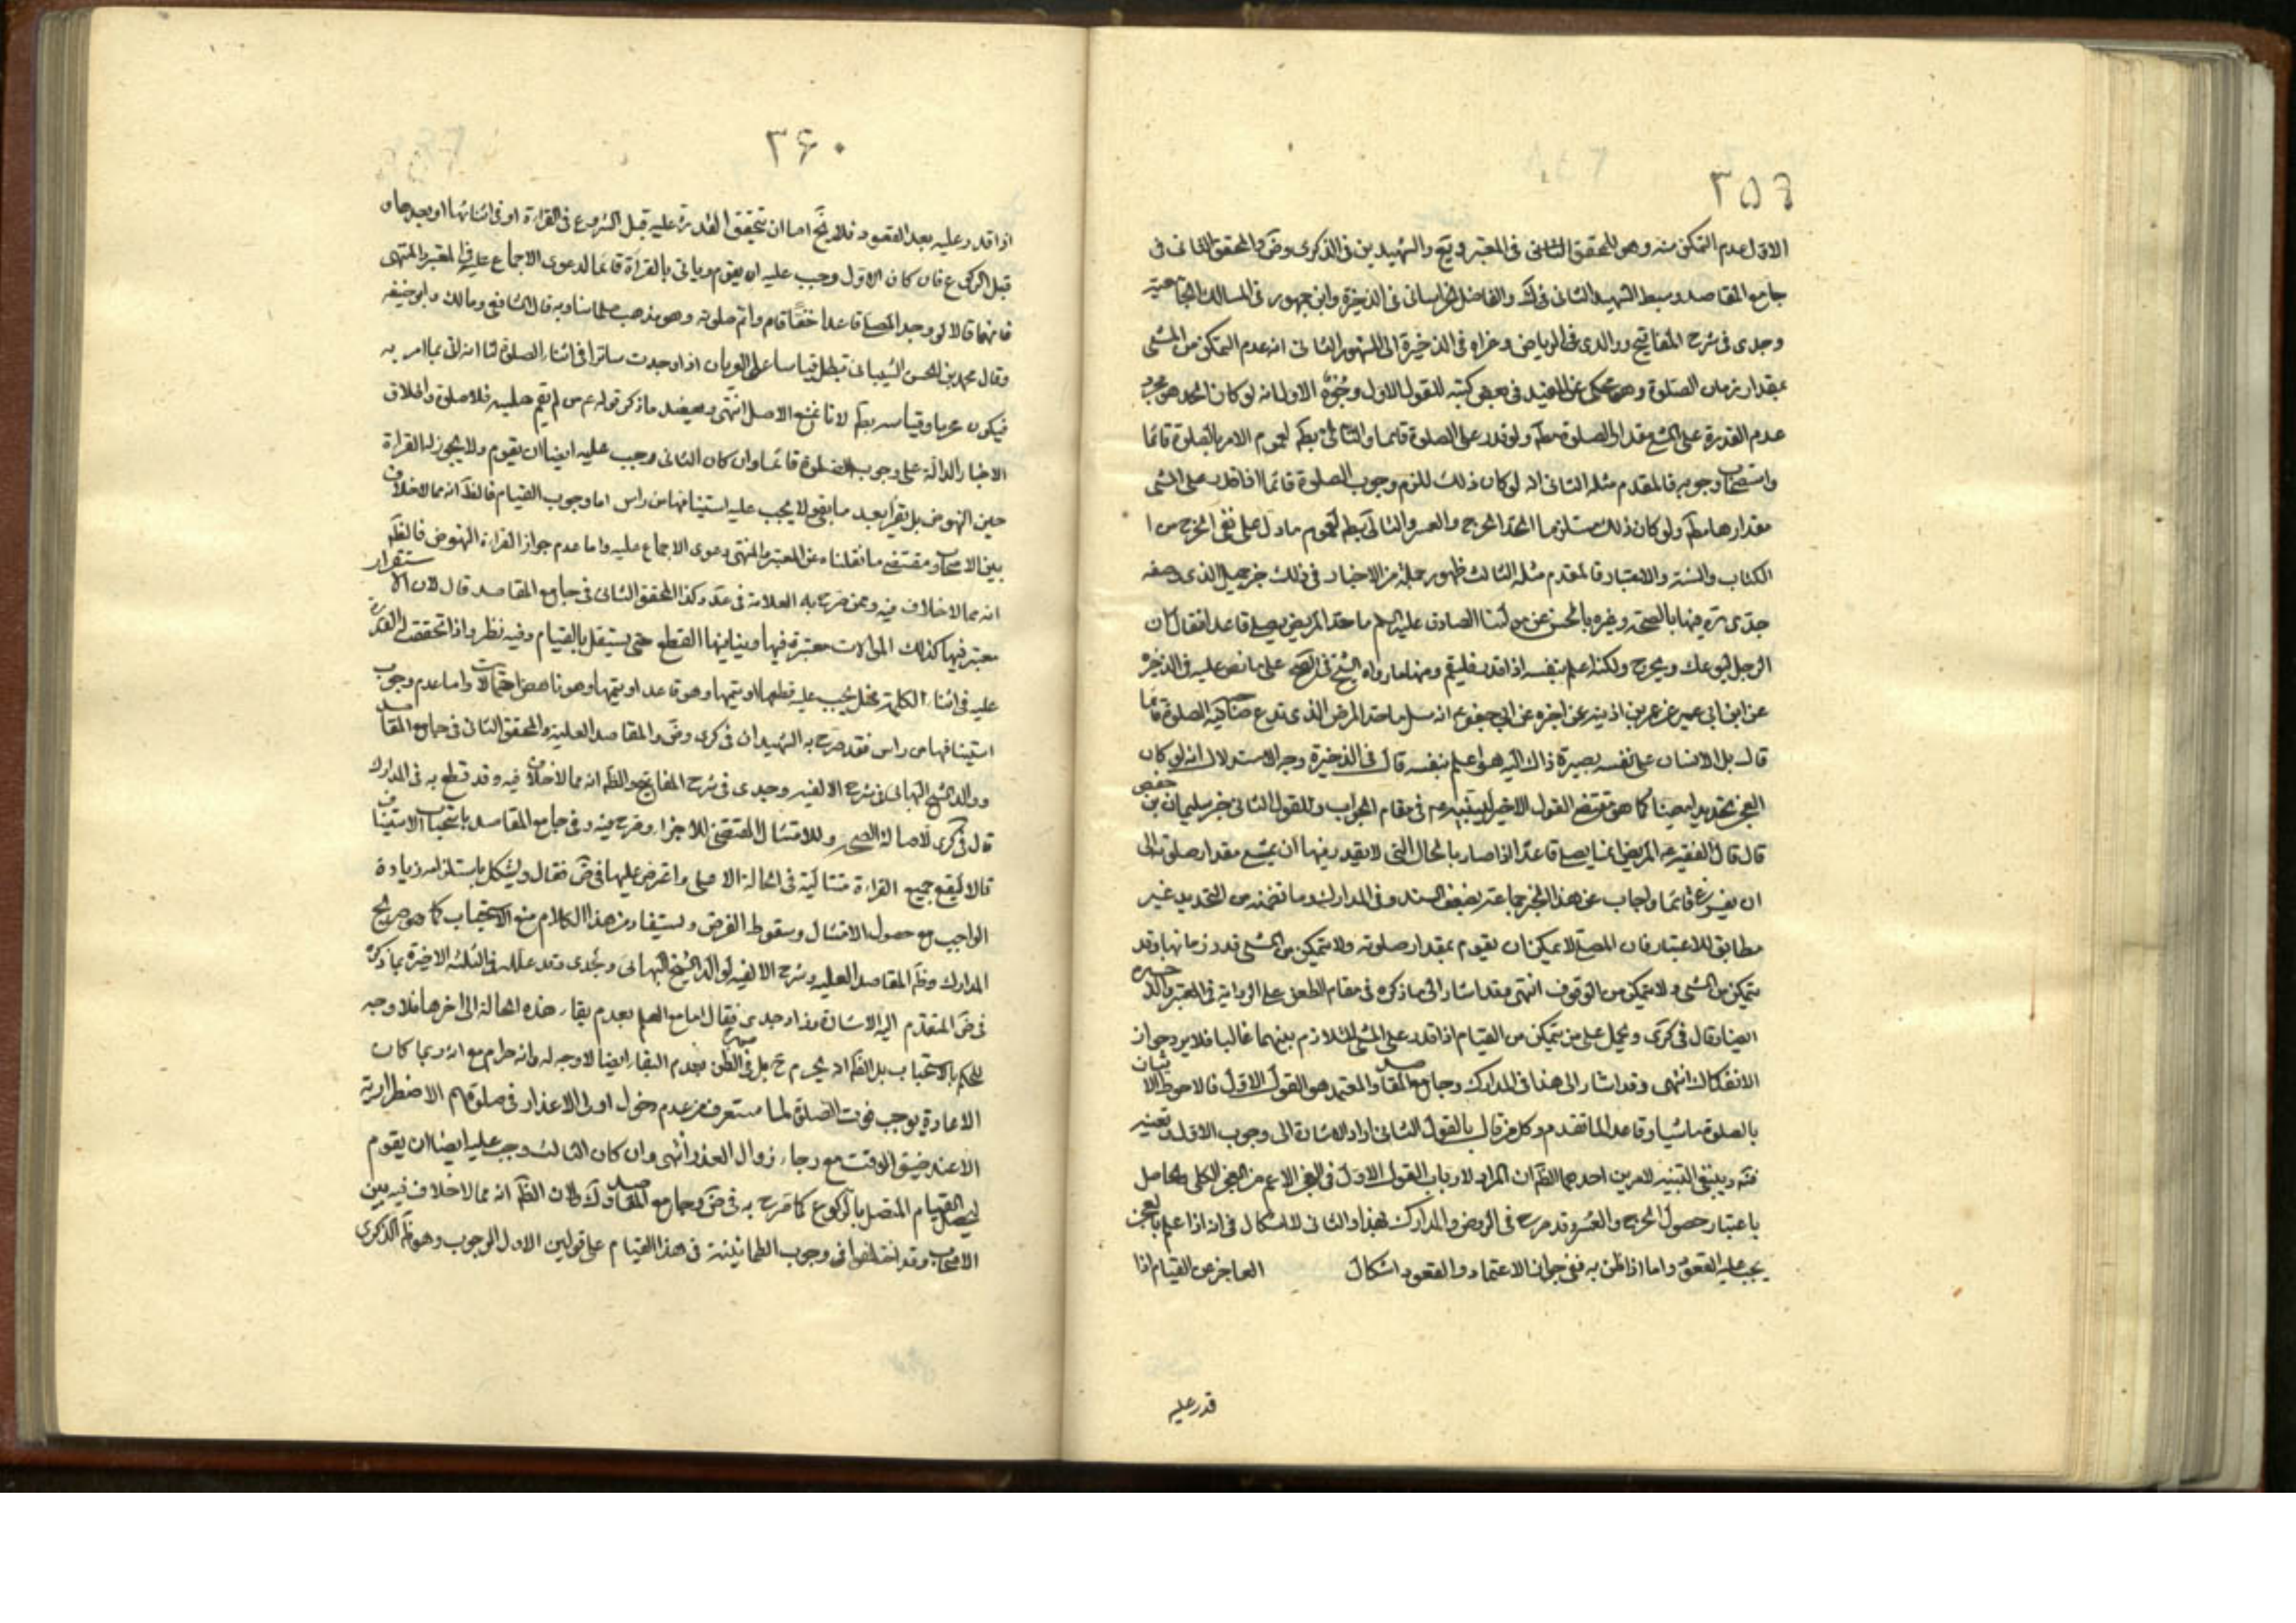 ٣٥٩
الاول عدم التمكن منه وهو للمحقق الثانى فى المعتبر ويع والشهيدين فى الذكرى وض والمحقق الثانى فى
جامع المقاصد وسبط الشهيد الثانى فى ك والفاضل الخراسانى فى الذخيرة وابن جمهور فى المسالك الجامعية
وجدى فى شرح المفاتيح ووالدى فى الرياض وعزاه فى الذخيرة الى المشهور الثانى انه عدم التمكن من المشى
بمقدار زمان الصلوة وهو محكى عن المفيد فى بعض كتبه للقول الاول وجوه الاول انه لو كان الحد هو مجرد
عدم القدرة على المشى مقدار الصلوة مطلقا ولو قدر على الصلوة قائما والتالى بطم لعموم الامر بالصلوة قائما
واستصحاب وجوبه فالمقدم مثله الثانى انه لو كان ذلك للزم وجوب الصلوة قائما اذا قدر على المشى
مقدارها مطم ولو كان ذلك مستلزما الحد الحرج والعسر والتالى بطم لعموم ما دل على نفى الحرج من ا
الكتاب والسنة والاعتبار فالمقدم مثله الثالث ظهور جملة من الاخبار فى ذلك خبر جميل الذى وصفه
جدى ره فيها بالصحة وغيره بالحسن عن مولانا الصادق عليه السلم ما حد المريض يصلى قاعدا فقال ان
الرجل ليوعك ويحرج ولكنه اعلم بنفسه اذا قدر فليقم ومنها ما رواه الشيخ فى الصحيح على ما نص عليه فى الذخيرة
عن ابن ابى عمير عن عمر بن اذينه عن اخبره عن ابى جعفر ع انه سئل ما حد المرض الذى يدع صاحبه الصلوة قائما
قال بل الانسان على نفسه بصيرة ذاك اليه هو اعلم بنفسه قال فى الذخيرة وجه الاستدلال انه لو كان
العجز بتحديدا معينا كما هو مقتضى القول الاخير لبينه ع فى مقام الجواب وللقول الثانى خبر سليمان بن حفص
قال قال الفقيه ع المريض انما يصلى قاعدا اذا صار بالحال التى لا يقدر فيها ان يمشى مقدار صلوته الى
ان يفرغ قائما واجاب عن هذا الخبر جماعة بضعف السند وفى المدارك وما تضمنه من التحديد غير
مطابق للاعتبار فان المصلى لا يمكن ان يقوم بمقدار صلوته ولا يتمكن من المشى قدر زمانها وقد
يتمكن من المشى ولا يتمكن من الوقوف انتهى وقد اشار الى ما ذكره فى مقام الطعن على الرواية فى المعتبر والذخيره
ايضا وقال فى كرى ويحمل على من يتمكن من القيام اذا قدر على المشى للتلازم بينهما غالبا فلا يرد جواز
الانفكاك انتهى وقد اشار الى هذا فى المدارك وجامع المقاصد والمعتمد هو القول الاول فالاحوط الاتيان
بالصلوة ماشيا وقاعدا لما تقدم وكل من قال بالقول الثانى اراد الاشارة الى وجوب الاول وتعينه
فتم وينبغى التنبيه لامرين احدهما الظم ان المراد لارباب القول الاول فى العجز الاعم من العجز الكلى والحاصل
باعتبار حصول الحرج والعسر وقد صرح فى الروض والمدارك بهذا والثانى لا اشكال فى انه اذا علم بالعجز
يجب عليه القعود واما اذا ظن به ففى جواز الاعتماد والقعود اشكال العاجز عن القيام اذا
قدر عليه
٣۶٠
اذا قدر عليه بعد القعود فلا يخ اما ان تتحقق القدرة عليه قبل الشروع فى القراءة او فى اثنائها او بعدها و
قبل الركوع فان كان الاول وجب عليه ان يقوم وياتى بالقراءة قائما لدعوى الاجماع عليه فى المعتبر والمنتهى
فانهما قالا لو وجد المصلى قاعدا خفا قام واتم صلوته وهو مذهب علمائنا وبه قال الشافعى ومالك وابو حنيفه
وقال محمد بن الحسن الشيبانى تبطل قياسا على العريان اذا وجدت ساترا فى اثناء الصلوة لنا انه اتى بما امر به
فيكون مجزيا وقياسه بطم لانا نمنع الاصل انتهى ويعضد ما ذكر قوله ع من لم يقم صلبه فلا صلوة واطلاق
الاخبار الدالة على وجوب الصلوة قائما وان كان الثانى وجب عليه ايضا ان يقوم ولا يجوز له القراءة
حين النهوض بل يقرا بعد ما بقى ولا يجب عليه استينافها من راس اما وجوب القيام فالظم انه مما لا خلاف
بين الاصحاب ومقتضى ما نقلناه عن المعتبر والمنتهى دعوى الاجماع عليه واما عدم جواز القراءة النهوض فالظم
انه مما لا خلاف فيه وممن صرح به العلامة فى عد وكذا المحقق الثانى فى جامع المقاصد قال لان الاستقرار
معتبر فيها كذلك الموالات معتبرة فيها وينافيها القطع حتى يستقل بالقيام وفيه نظر واذا تحققت القدرة
عليه فى اثناء الكلمة فهل يجب عليه قطعها او يتمها وهو قاعد او يتمها وهو ناهض احتمالات واما عدم وجوب
استينافها من راس فقد صرح به الشهيدان فى كرى وض والمقاصد العلية والمحقق الثانى فى جامع المقاصد
ووالد الشيخ البهائى فى شرح الالفيه وجدى فى شرح المفاتيح والظم انه مما لا خلاف فيه وقد قطع به فى المدارك
قال فى كرى لاصالة الصحة وللامتثال المقتضى للاجزاء وصرح فيه وفى جامع المقاصد باستحباب الاستيناف
قالا ليقع جميع القراءة متتالية فى الحالة الاعلى واعترض عليهما فى ض فقال ويشكل باستلزامه زيادة
الواجب مع حصول الامتثال وسقوط الفرض ويستفاد من هذا الكلام منع الاستحباب كما هو صريح
المدارك وظم المقاصد العليه وشرح الالفيه لوالد الشيخ البهائى وجدى وقد علله فى الثلثه الاخيرة بما ذكره
فى ض المتقدم اليه الاشارة وزاد جدى فقال اما مع العلم بعدم بقاء هذه الحالة الى اخرها فلا وجه
للحكم بالاستحباب بل الظم انه يحرم ح بل فى الظن بعدم البقاء ايضا لا وجه له وانه حرام مع انه ربما كان
الاعادة يوجب فوت الصلوة لما ستعرف من عدم دخول اولى الاعذار فى صلوتهم الاضطرارية
الا عند ضيق الوقت مع رجاء زوال العذر انتهى وان كان الثالث وجب عليه ايضا ان يقوم
ليحصل القيام المتصل بالركوع كما صرح به فى ض وجامع المقاصد وك لان الظم انه مما لا خلاف فيه بين
الاصحاب وقد اختلفوا فى وجوب الطمانينة فى هذا القيام على قولين الاول الوجوب وهو ظم الذكرى